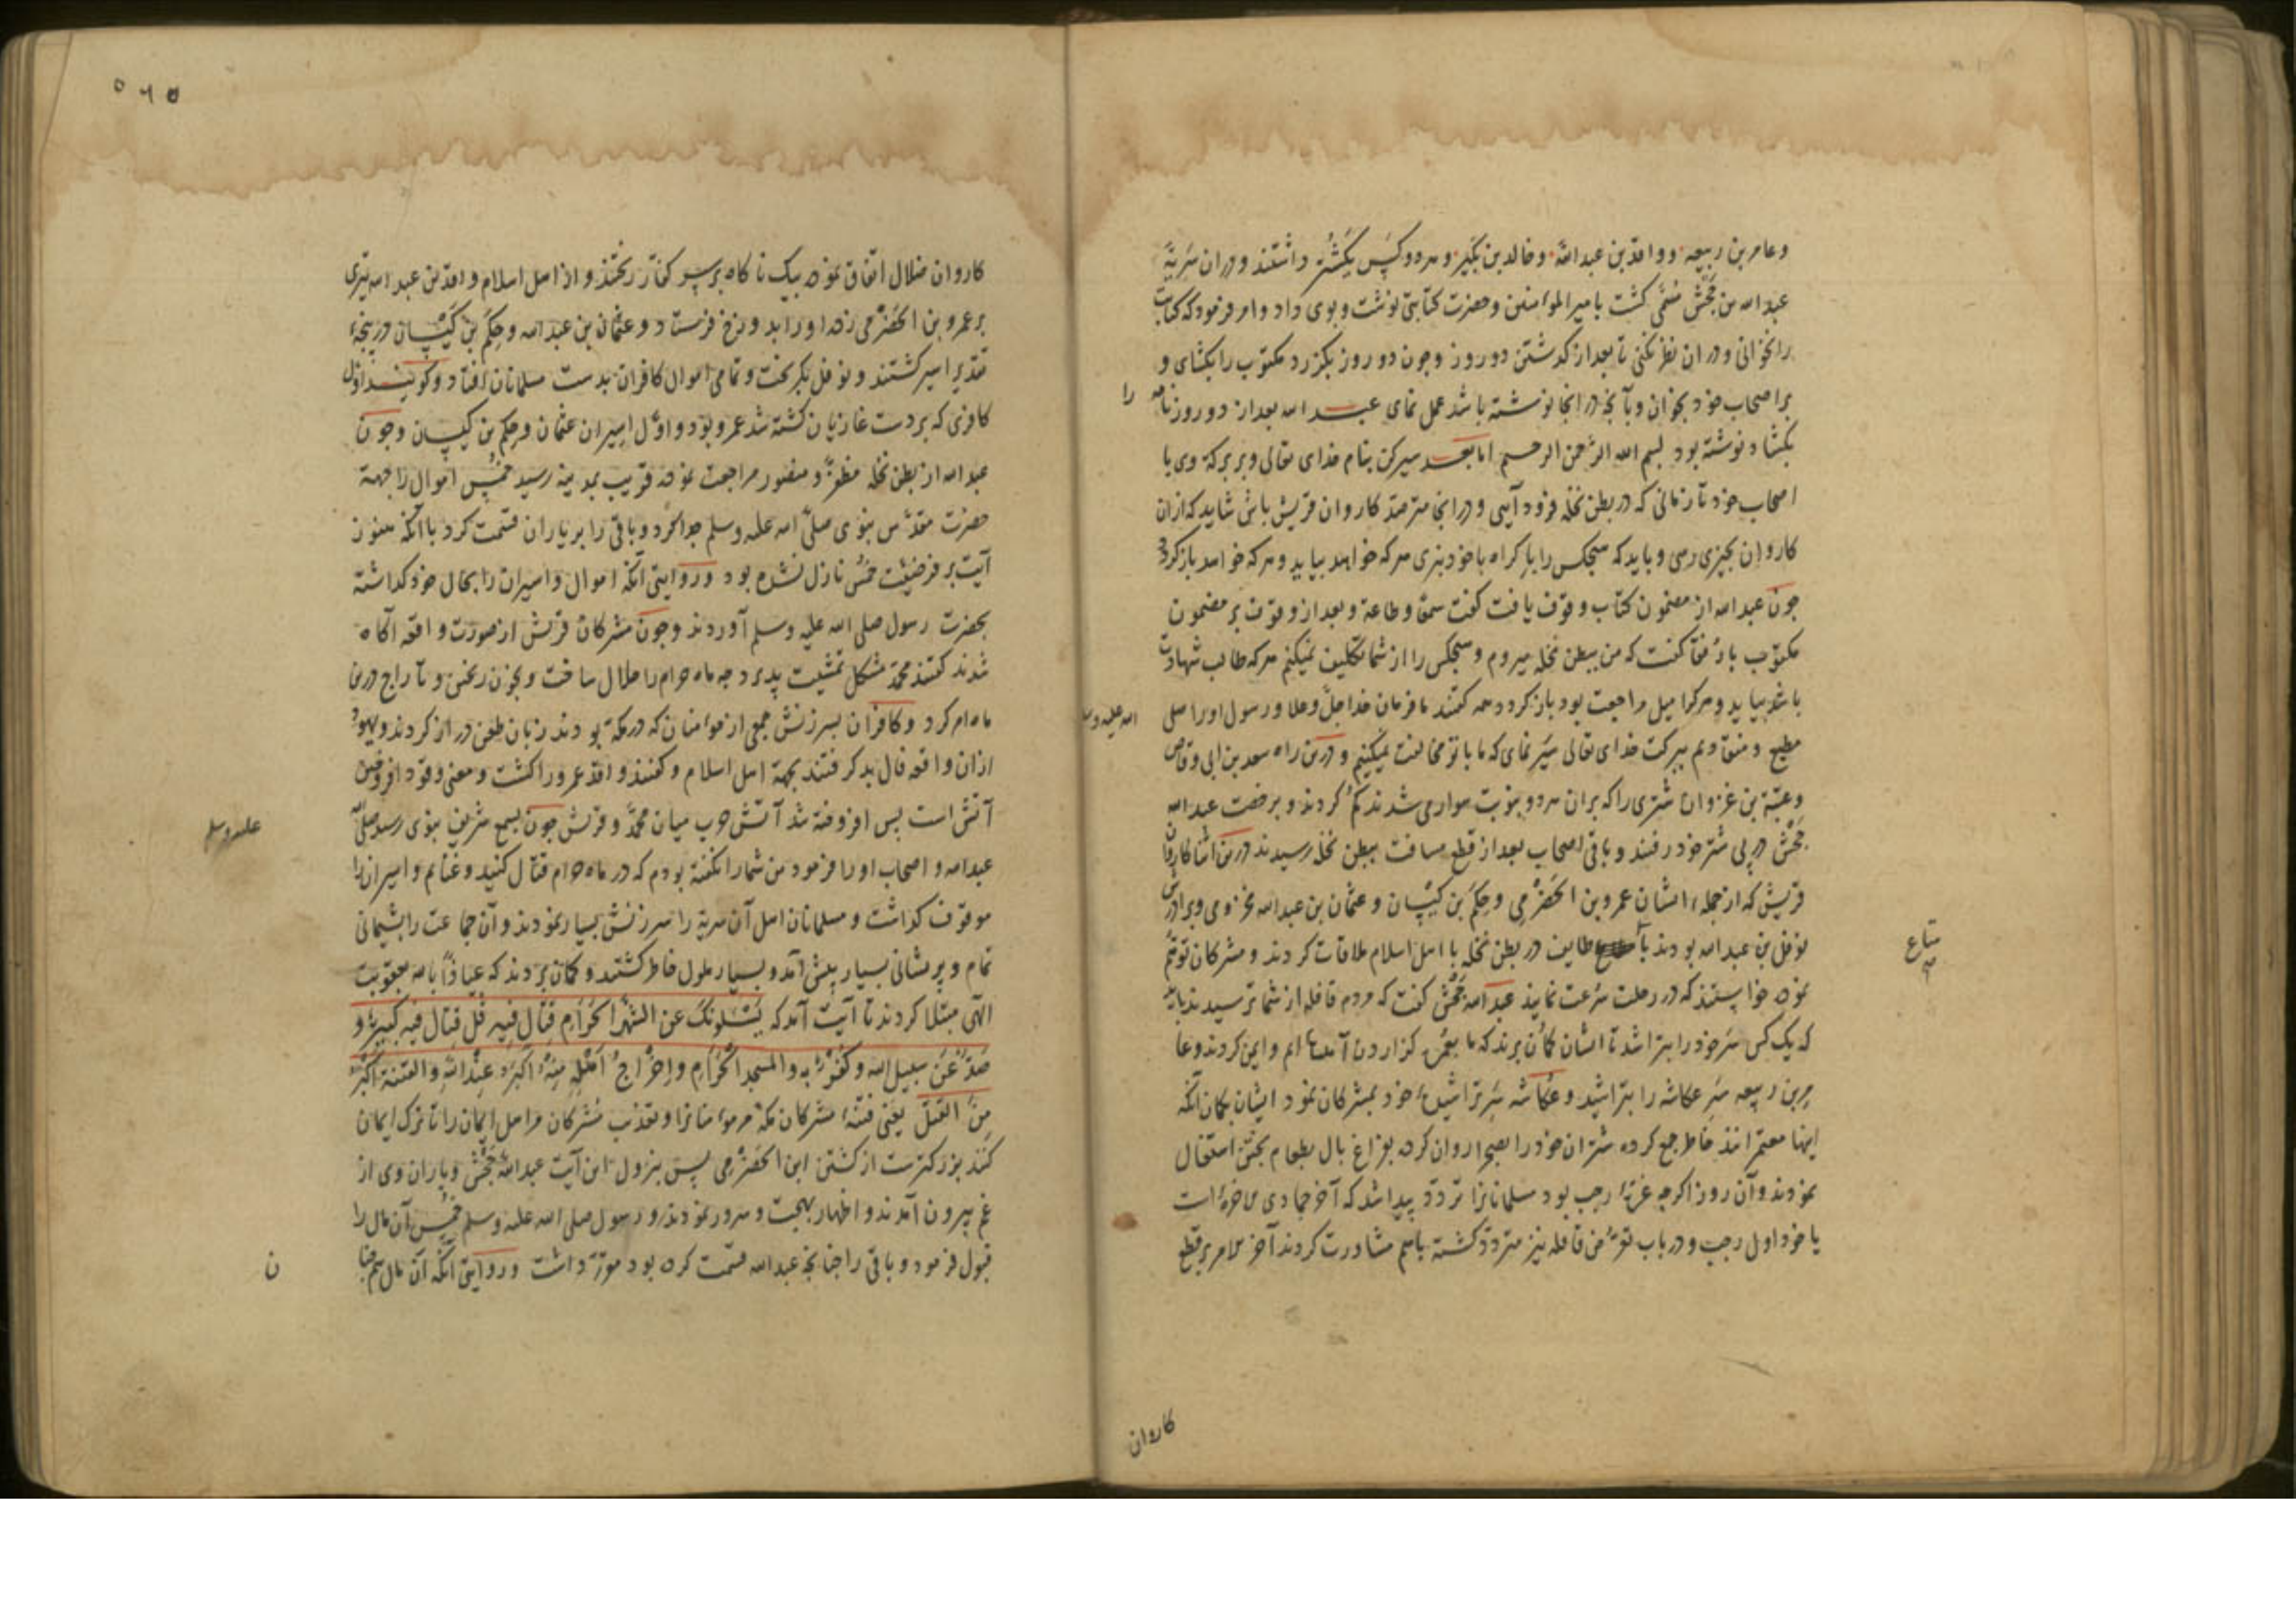 وعامر بن ربیعه و واقد بن عبدالله وخالد بن بکیر و هر دو کس یکشتر داشتند و در ان سریّه
عبدالله بن جحش مسمّی کشت بامیر المؤمنین وحضرت کتابتی نوشت و بوی داد وامر فرمود که کتابت
را نخوانی و در ان نظر نکنی تا بعد از کذشتن دو روز وجون دو روز بکزرد مکتوب را بکشای و
بر اصحاب خود بخوان وبآنچه در انجا نوشته باشد عمل نمای عبدالله بعد از دو روز نامه
را
بکشاد نوشته بود بسم الله الرّحمن الرحیم امّا بعد سیر کن بنام خدای تعالی وبر برکة وی با
اصحاب خود تا زمانی که در بطن نخله فرود آیی و در انجا مترصّد کاروان قریش باش شاید که ازان
کاروان بچیزی رسی و باید که هیچکس را باکراه با خود نبری هر که خواهد بیاید و هر که خواهد باز کردد
جون عبدالله از مضمون کتاب وقوف یافت کفت سمعًا وطاعة وبعد از وقوف بر مضمون
مکتوب با رفقا کفت که من ببطن نخله میروم و هیچکس را از شما تکلیف نمیکنم هر که طالب شهادت
باشد بیاید و هر کرا میل مراجعت بود باز کردد همه کفتند ما فرمان خدا جلّ وعلا و رسول او را صلی
الله علیه وسلم
مطیع و منقادیم ببرکت خدای تعالی سیر نمای که ما با تو مخالفت نمیکنیم و درین راه سعد بن ابی وقاص
وعتبة بن غزوان شتری را که بران هر دو بنوبت سواری شدند کم کردند و برخصت عبدالله
جحش در پی شتر خود رفتند و باقی اصحاب بعد از قطع مسافت ببطن نخله رسیدند درین اثنا کاروان
قریش که از جمله ایشان عمرو بن الحَضْرَمِی وحِکَم بن کَیسان و عثمان بن عبدالله مخزومی وبرادرش
نوفل بن عبدالله بودند با طایف در بطن نخله با اهل اسلام ملاقات کردند و مشرکان توهّم
متاع
نموده خواستند که در رحلت سرعت نمایند عبدالله جحش کفت که مردم قافله از شما ترسیدند باید
که یک کس سر خود را بتراشد تا ایشان کمان برند که ما بعمره کزاردن آمده ایم وایمن کردند وعا
مر بن ربیعه سر عکاشه را بتراشید و عکاشه سر تراشیدهٔ خود بمشرکان نمود ایشان بکمان آنکه
اینها معتمرانند خاطر جمع کرده شتران خود را بصحرا روان کرده بفراغ بال بطعام پختن اشتغال
نمودند وآن روز اکرچه غرّهٔ رجب بود مسلمانانرا تردّد پیدا شد که آخر جمادی الاخرة است
یا خود اول رجب و در باب تعرّض قافله نیز متردّد کشته باهم مشاورت کردند آخر الامر بر قطع
کاروان
۵۶۵
کاروان ضلال اتفاق نموده بیک ناکاه بر سر کفّار ریختند و از اهل اسلام واقد بن عبدالله تیری
بر عمرو بن الحَضْرَمی زده او را بدوزخ فرستاد و عثمان بن عبدالله وحِکَم بن کَیسان در پنجهٔ
تقدیر اسیر کشتند و نوفل بکریخت و تمامی اموال کافران بدست مسلمانان افتاد و کویند اوّل
کافری که بر دست غازیان کشته شد عمرو بود و اوّل اسیران عثمان وحکم بن کیسان وجون
عبدالله از بطن نخله مظفّر و منصور مراجعت نموده قریب بمدینه رسید خمس اموال را جهة
حضرت مقدّس نبوی صلّی الله علیه وسلم جدا کرد و باقی را بر یاران قسمت کرد با آنکه هنوز
آیت بر فرضیّت خمس نازل نشده بود و روایتی آنکه اموال و اسیران را بحال خود کذاشته
بحضرت رسول صلی الله علیه وسلم آوردند وجون مشرکان قریش از صورت واقعه آکاه
شدند کفتند محمّد مشکل تمشیت پذیرد چه ماه حرام را حلال ساخت و بخون ریختن و تاراج درین
ماه امر کرد و کافران بسرزنش جمعی از مؤمنان که در مکّه بودند زبان طعن دراز کردند و یهود
ازان واقعه فال بد کرفتند بجهة اهل اسلام و کفتند واقد عمرو را کشت و معنی وقود افروختن
آتش است پس افروخته شد آتش حرب میان محمّد و قریش جون بسمع شریف نبوی رسید صلی الله
علیه وسلم
عبدالله و اصحاب او را فرمود من شما را نکفته بودم که در ماه حرام قتال کنید وغنایم و اسیران را
موقوف کذاشت و مسلمانان اهل آن سریّه را سرزنش بسیار نمودند و آن جماعت را پشیمانی
تمام و پریشانی بسیار پیش آمد و بسیار ملول خاطر کشتند و کمان بردند که عیاذًا بالله بعقوبت
الهی مبتلا کردند تا آیت آمد که یَسْئَلُونَکَ عَنِ الشَّهْرِ الْحَرَامِ قِتَالٍ فِیهِ قُلْ قِتَالٌ فِیهِ کَبِیرٌ و
صَدٌّ عَنْ سَبِیلِ الله وَکُفْرٌ بِهِ وَالْمَسْجِدِ الْحَرَامِ وَإِخْرَاجُ أَهْلِهِ مِنْهُ أَکْبَرُ عِنْدَ اللهِ وَالْفِتْنَةُ أَکْبَرُ
مِنَ الْقَتْلِ یعنی فتنهٔ مشرکان مکّه مر مؤمنانرا وتعذیب مشرکان مر اهل ایمان را تا ترک ایمان
کنند بزرکترست از کشتن ابن الحَضْرَمی پس بنزول این آیت عبدالله جحش ویاران وی از
غم بیرون آمدند و اظهار بهجت و سرور نمودند و رسول صلی الله علیه وسلم خمس آن مال را
قبول فرمود و باقی را چنانچه عبدالله قسمت کرده بود مقرّر داشت و روایتی آنکه آن مال
ن